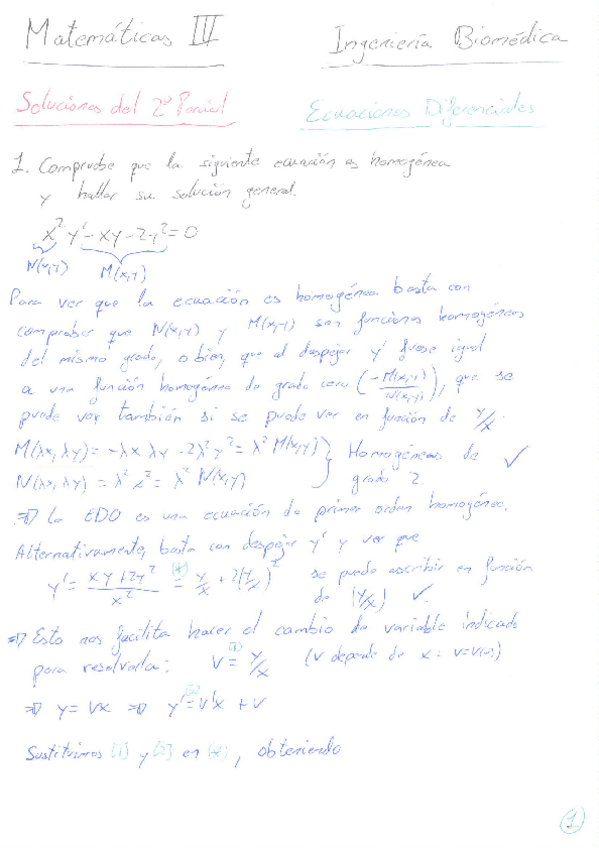 Matemáticas III Ingeniería Biomédica
Soluciones del 2º Parcial Ecuaciones Diferenciales
1. Compruebe que la siguiente ecuación es homogénea
y hallar su solución general.
x² y' - xy - 2y² = 0
N(x,y) M(x,y)
Para ver que la ecuación es homogénea basta con
comprobar que N(x,y) y M(x,y) son funciones homogéneas
del mismo grado, o bien, que al despejar y' fuese igual
a una función homogénea de grado cero (-M(x,y)/N(x,y)), que se
puede ver también si se puede ver en función de y/x.
M(λx, λy) = -λx λy - 2λ²y² = λ² M(x,y) } Homogéneas de ✓
N(λx, λy) = λ² x² = λ² N(x,y) grado 2.
⇒ La EDO es una ecuación de primer orden homogénea.
Alternativamente, basta con despejar y' y ver que
y' = (xy + 2y²)/x² (*)= y/x + 2(y/x)² se puede escribir en función
de (y/x) ✓.
⇒ Esto nos facilita hacer el cambio de variable indicado
para resolverla: v (1)= y/x (v depende de x : v = v(x))
⇒ y = vx ⇒ y' (2)= v'x + v
Sustituimos (1) y (2) en (*), obteniendo
1